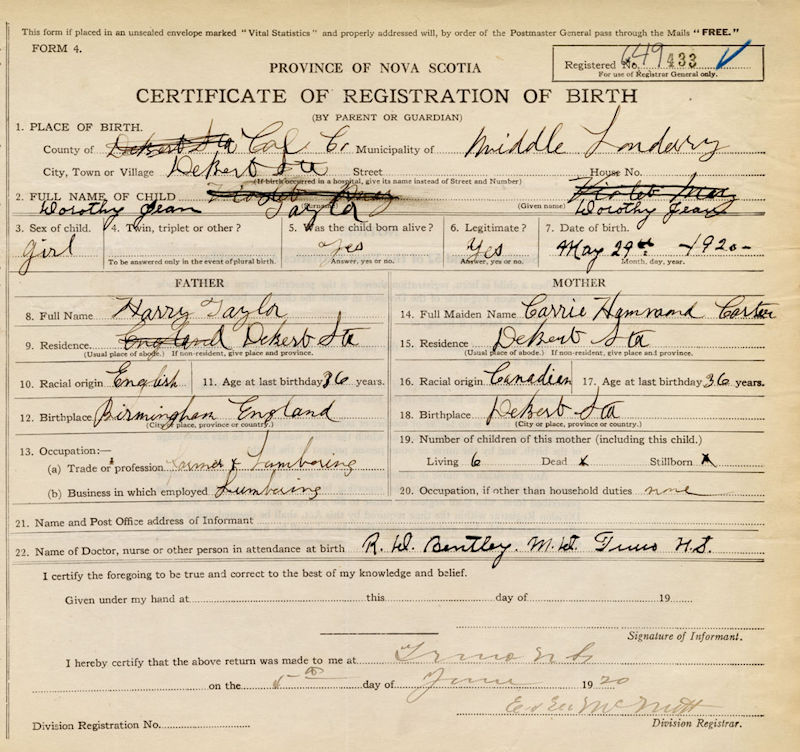 This form if placed in an unsealed envelope marked "Vital Statistics" and properly addressed will, by order of the Postmaster General pass through the Mails "FREE."
FORM 4.
Registered No. 649 433
For use of Registrar General only.
PROVINCE OF NOVA SCOTIA
CERTIFICATE OF REGISTRATION OF BIRTH
(BY PARENT OR GUARDIAN)
1. PLACE OF BIRTH.
County of Debert Sta Col Co Municipality of Middle Londery
City, Town or Village Debert Sta Street House No.
(If birth occurred in a hospital, give its name instead of Street and Number)
2. FULL NAME OF CHILD Violet May Violet May
Dorothy Jean Taylor Dorothy Jean
(Surname) (Given name)
3. Sex of child. 4. Twin, triplet or other? 5. Was the child born alive? 6. Legitimate? 7. Date of birth.
girl yes Yes May 29th 1920
To be answered only in the event of plural birth. Answer, yes or no. Answer, yes or no. Month, day, year.
FATHER MOTHER
8. Full Name Harry Taylor 14. Full Maiden Name Carrie Hammond Carter
9. Residence England Debert Sta 15. Residence Debert Sta
(Usual place of abode.) If non-resident, give place and province. (Usual place of abode.) If non-resident, give place and province.
10. Racial origin English 11. Age at last birthday 36 years. 16. Racial origin Canadian 17. Age at last birthday 36 years.
12. Birthplace Birmingham England 18. Birthplace Debert Sta
(City or place, province or country.) (City or place, province or country.)
13. Occupation:— 19. Number of children of this mother (including this child.)
(a) Trade or profession farmer & Lumbering Living 6 Dead x Stillborn x
(b) Business in which employed Lumbering 20. Occupation, if other than household duties none
21. Name and Post Office address of Informant
22. Name of Doctor, nurse or other person in attendance at birth R. D. Bentley. M.D. Truro N.S.
I certify the foregoing to be true and correct to the best of my knowledge and belief.
Given under my hand at this day of 19
Signature of Informant.
I hereby certify that the above return was made to me at Truro N S
on the 5th day of June 1920
McNutt
Division Registration No. Division Registrar.